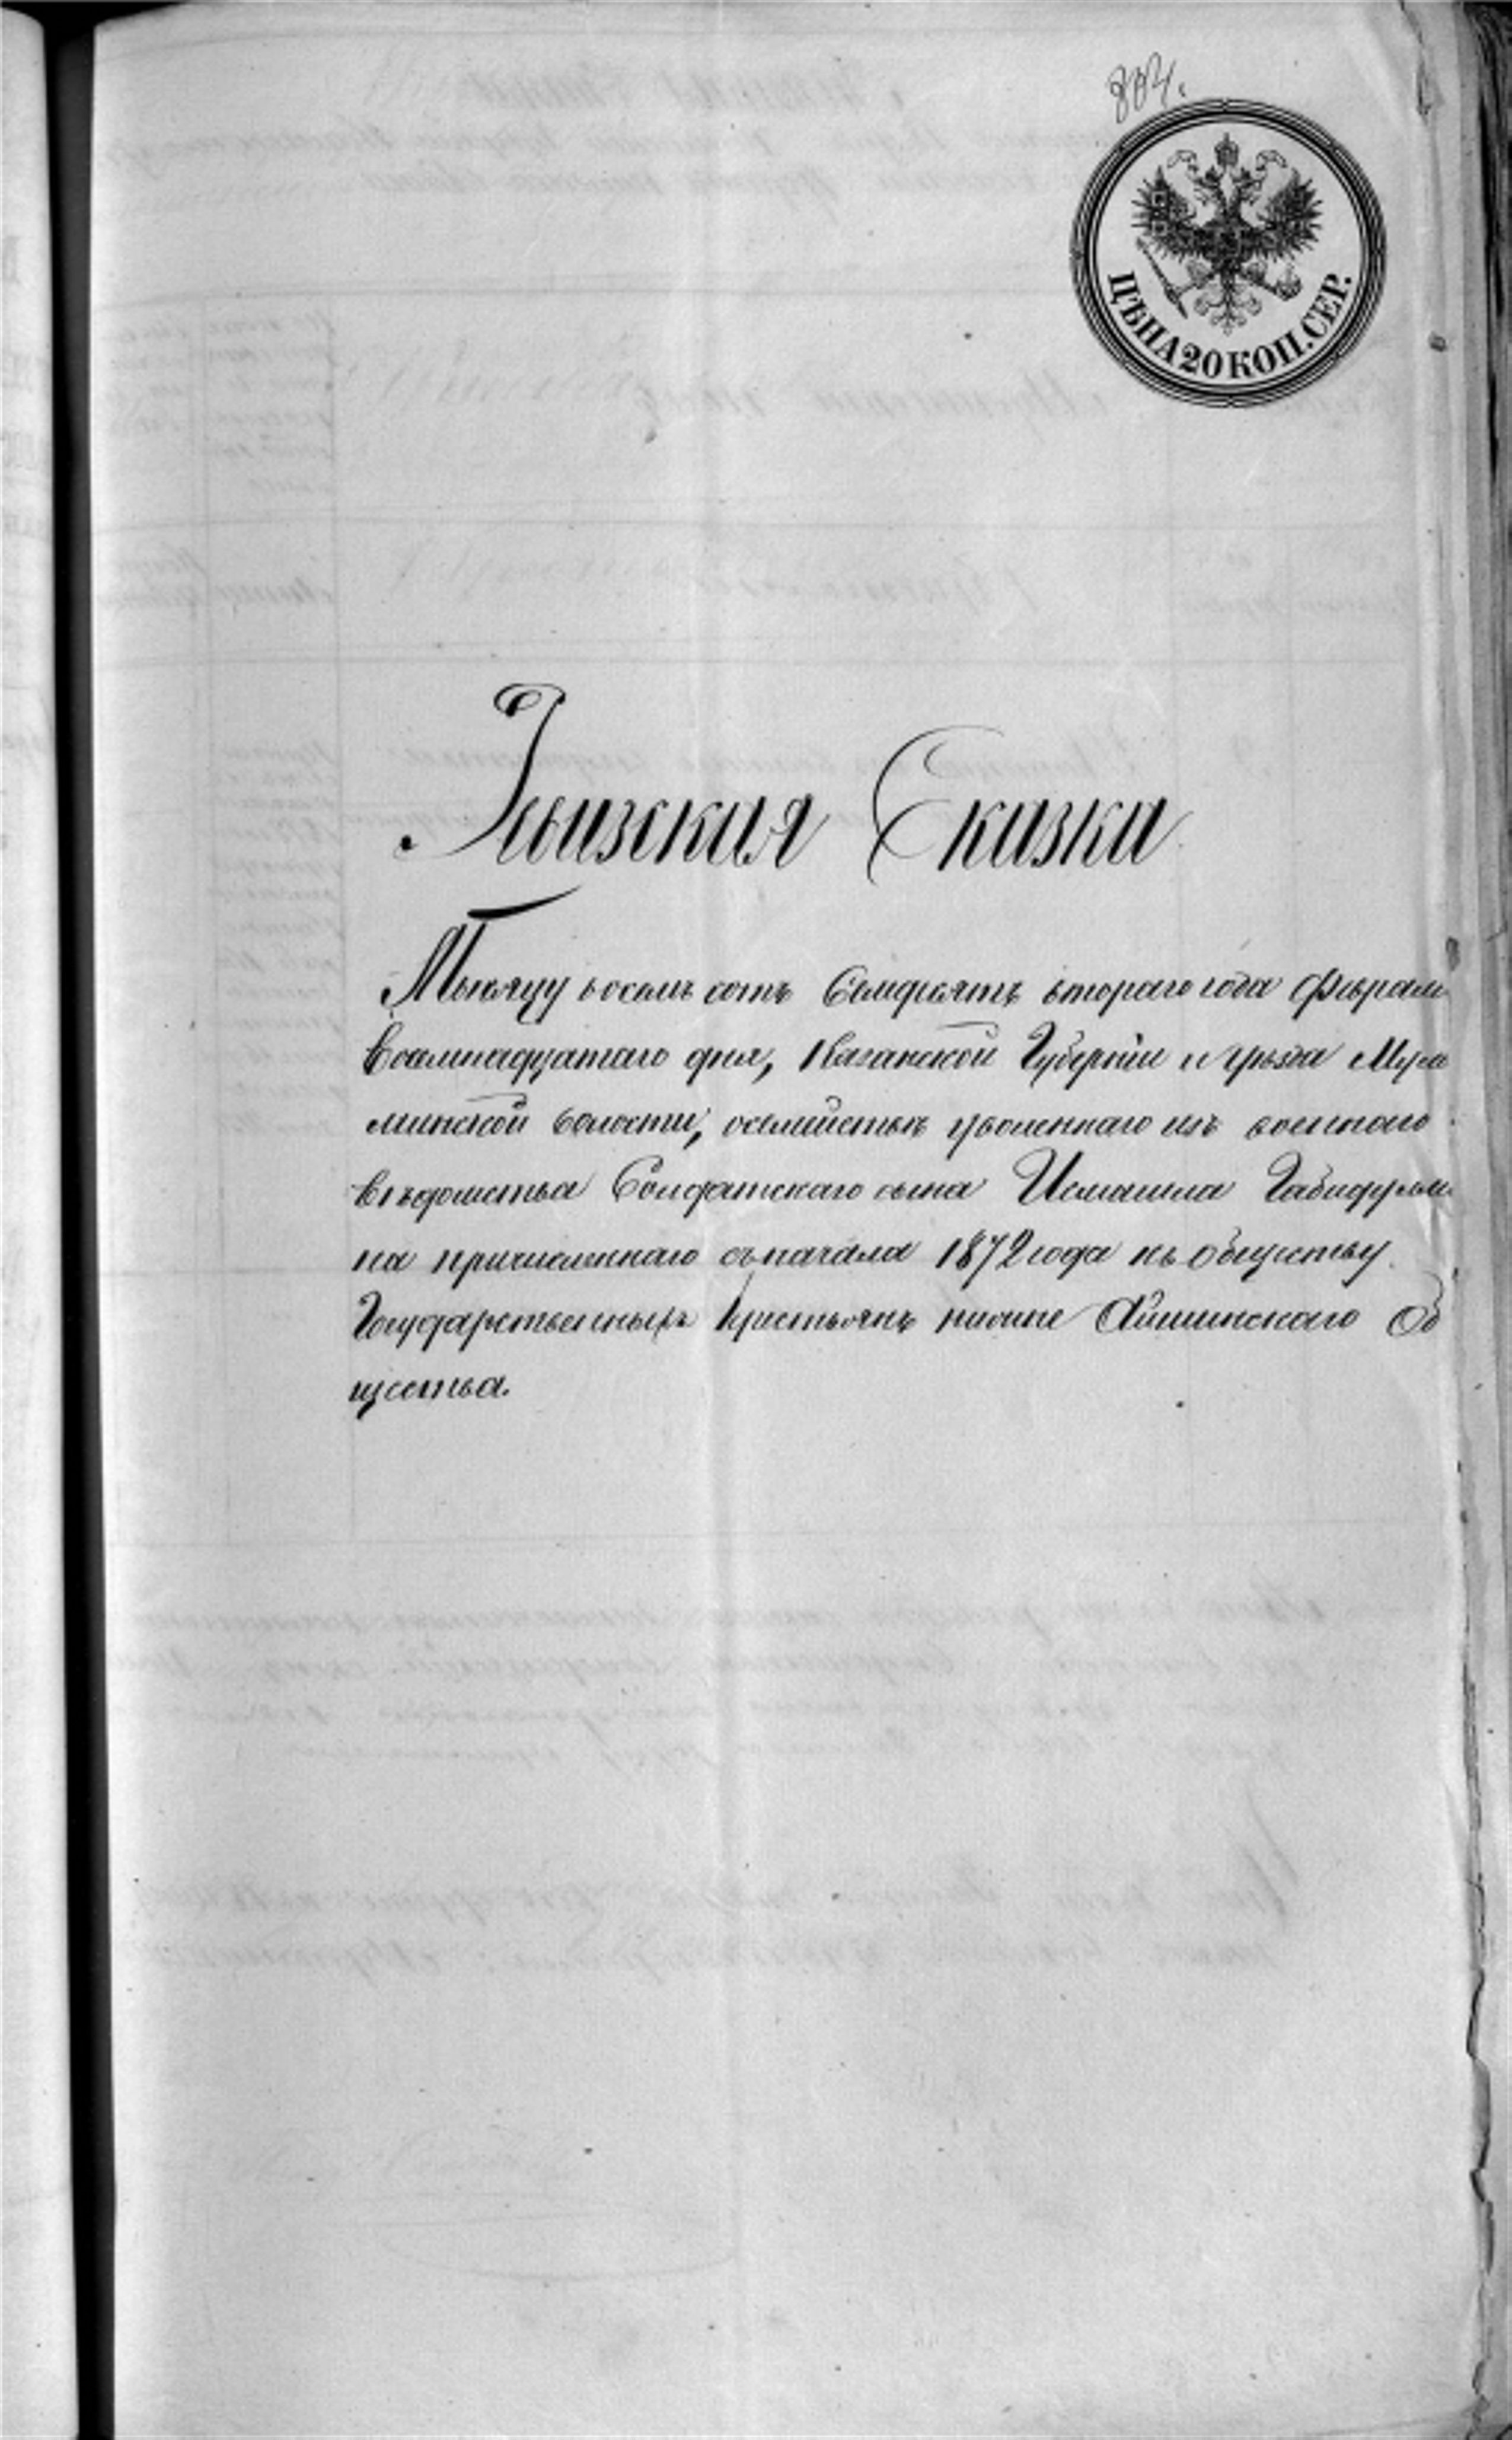 804.
ЦѢНА 20 КОП. СЕР.
Ревизская Сказка
Тысячу восемь сотъ Семдесятъ втораго года Февраля
Восемнадцатаго дня, Казанской Губерніи и уѣзда
минской волости, о семействѣ уволеннаго изъ военнаго
вѣдомства Солдатскаго сына Исмаила Габидулли
на причисленнаго съ начала 1872 года къ обществу
Государственныхъ Крестьянъ Айшинскаго Об
щества.